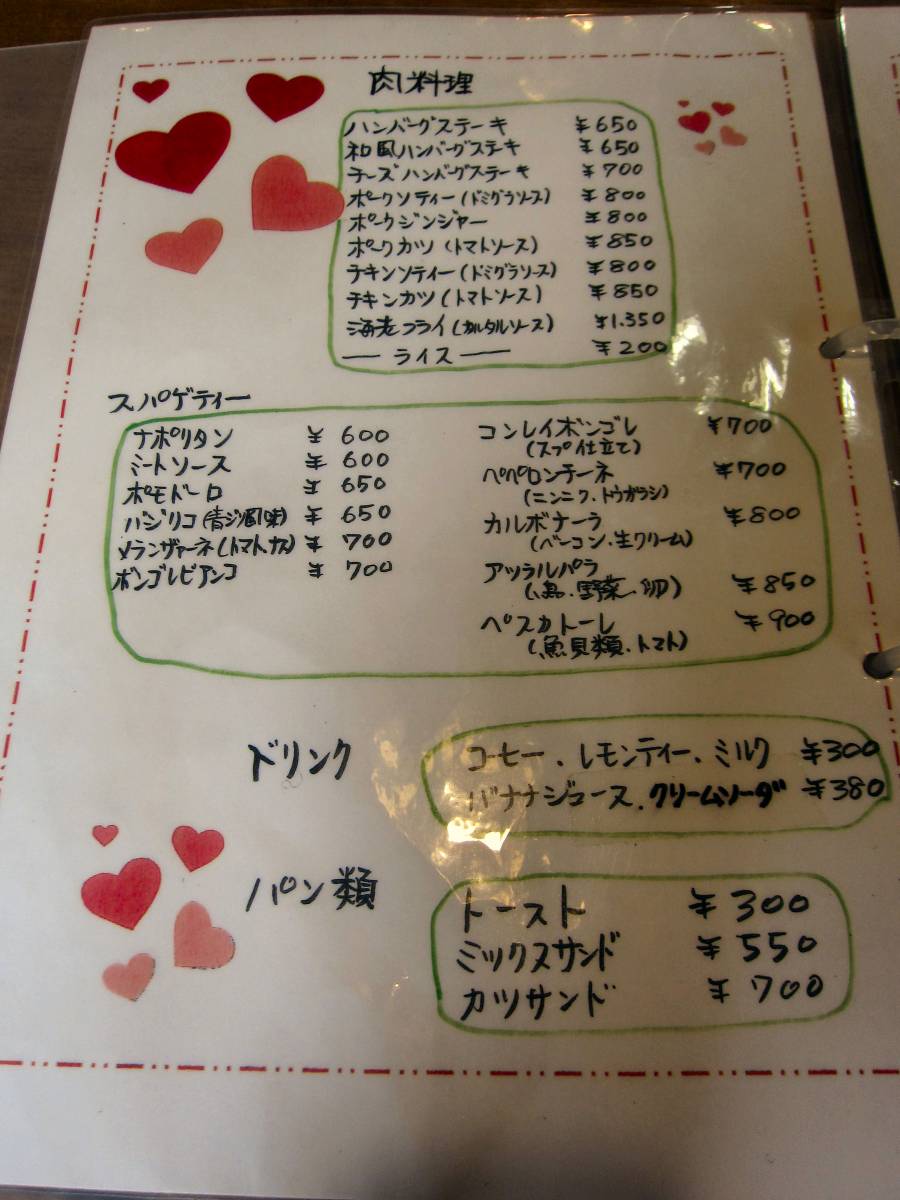 肉料理
ハンバーグステーキ ¥650
和風ハンバーグステーキ ¥650
チーズハンバーグステーキ ¥700
ポークソティー(ドミグラソース) ¥800
ポークジンジャー ¥800
ポークカツ(トマトソース) ¥850
チキンソティー(ドミグラソース) ¥800
チキンカツ(トマトソース) ¥850
海老フライ(タルタルソース) ¥1.350
— ライス — ¥200
スパゲティー
ナポリタン ¥600
ミートソース ¥600
ポモドーロ ¥650
バジリコ(青ジソ風味) ¥650
メランザーネ(トマト.ナス) ¥700
ボンゴレビアンコ ¥700
コンレイボンゴレ ¥700
(スープ仕立て)
ペペロンチーネ ¥700
(ニンニク.トウガラシ)
カルボナーラ ¥800
(ベーコン.生クリーム)
アツラルパラ ¥850
(.野菜.卵)
ペスカトーレ ¥900
(魚貝類.トマト)
ドリンク
コーヒー、レモンティー、ミルク ¥300
バナナジュース、クリームソーダ ¥380
パン類
トースト ¥300
ミックスサンド ¥550
カツサンド ¥700